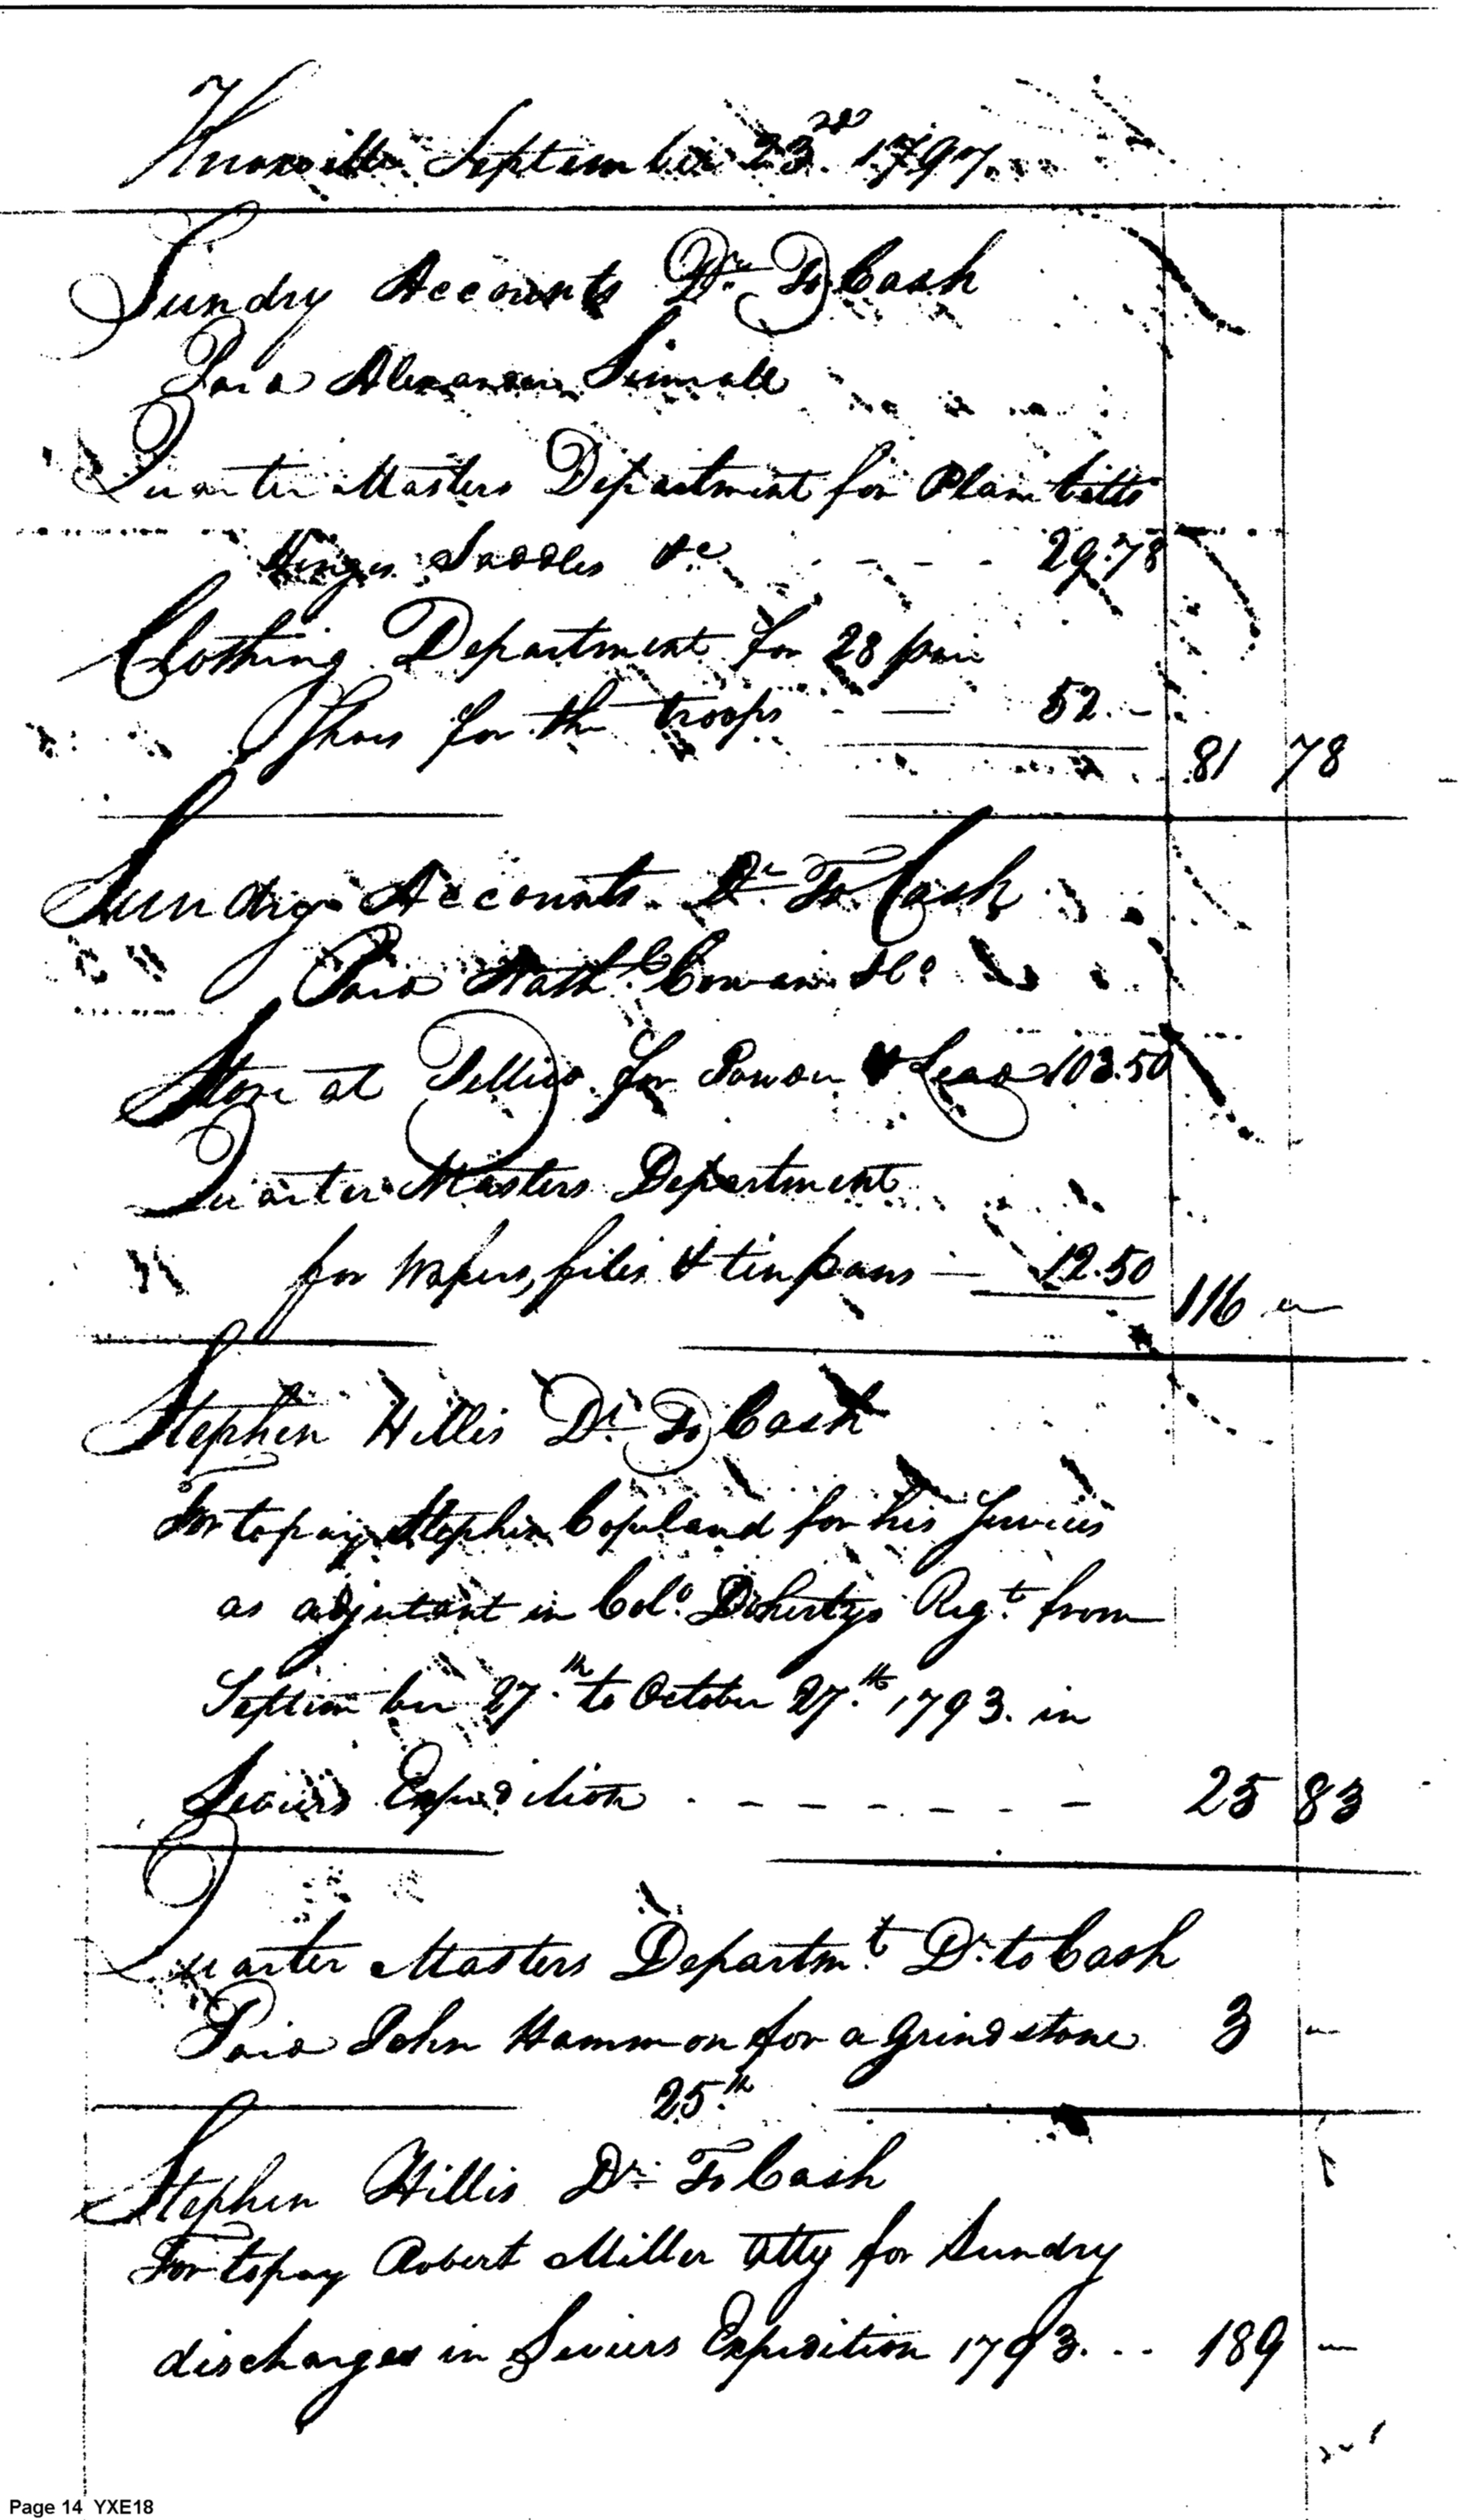 Knoxville September 23rd 1797.
Sundry Accounts Dr. To Cash
Paid Alexander
Quarter Masters Department for Plain bitts
Hinges Saddles &c - - - - 29.78
Clothing Department for 28 pair
Shoes for the troops - — 52. -
81 78
Sundry Accounts Dr. To Cash
Paid Nathl. Cowan & Co.
Store at Tellico for Powder & Lead 103.50
Quarter Masters Department
for Wafers, files & tin pans — 12.50
116 —
Stephen Hillis Dr. To Cash
For to pay Stephen Copeland for his Services
as adjutant in Colo. Dohertys Regt. from
September 27.th to October 27.th 1793. in
Seviers Expedition - - - - - - - 25 83
Quarter Masters Departmt. Dr. to Cash
Paid John Hammon for a Grindstone 3 —
25.th
Stephen Hillis Dr. To Cash
For to pay Robert Miller atty for Sundry
discharges in Seviers Expedition 1793. - - 189 —
Page 14 YXE18